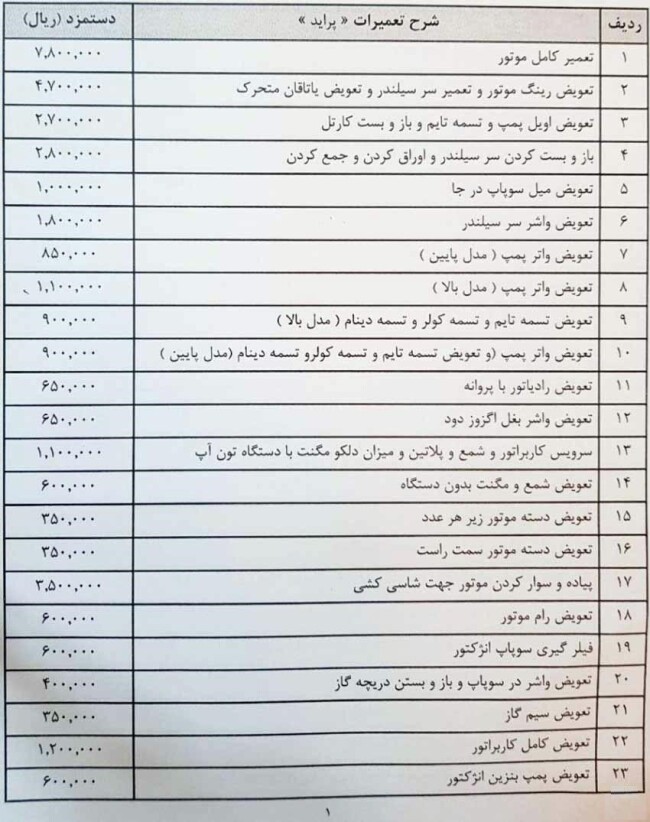 ردیف شرح تعمیرات « پراید » دستمزد (ریال)
۱ تعمیر کامل موتور ۷,۸۰۰,۰۰۰
۲ تعویض رینگ موتور و تعمیر سر سیلندر و تعویض یاتاقان متحرک ۴,۷۰۰,۰۰۰
۳ تعویض اویل پمپ و تسمه تایم و باز و بست کارتل ۲,۷۰۰,۰۰۰
۴ باز و بست کردن سر سیلندر و اوراق کردن و جمع کردن ۲,۸۰۰,۰۰۰
۵ تعویض میل سوپاپ در جا ۱,۰۰۰,۰۰۰
۶ تعویض واشر سر سیلندر ۱,۸۰۰,۰۰۰
۷ تعویض واتر پمپ ( مدل پایین ) ۸۵۰,۰۰۰
۸ تعویض واتر پمپ ( مدل بالا ) ۱,۱۰۰,۰۰۰
۹ تعویض تسمه تایم و تسمه کولر و تسمه دینام ( مدل بالا ) ۹۰۰,۰۰۰
۱۰ تعویض واتر پمپ (و تعویض تسمه تایم و تسمه کولرو تسمه دینام (مدل پایین ) ۹۰۰,۰۰۰
۱۱ تعویض رادیاتور با پروانه ۶۵۰,۰۰۰
۱۲ تعویض واشر بغل اگزوز دود ۶۵۰,۰۰۰
۱۳ سرویس کاربراتور و شمع و پلاتین و میزان دلکو مگنت با دستگاه تون آپ ۱,۱۰۰,۰۰۰
۱۴ تعویض شمع و مگنت بدون دستگاه ۶۰۰,۰۰۰
۱۵ تعویض دسته موتور زیر هر عدد ۳۵۰,۰۰۰
۱۶ تعویض دسته موتور سمت راست ۳۵۰,۰۰۰
۱۷ پیاده و سوار کردن موتور جهت شاسی کشی ۳,۵۰۰,۰۰۰
۱۸ تعویض رام موتور ۶۰۰,۰۰۰
۱۹ فیلر گیری سوپاپ انژکتور ۶۰۰,۰۰۰
۲۰ تعویض واشر در سوپاپ و باز و بستن دریچه گاز ۴۰۰,۰۰۰
۲۱ تعویض سیم گاز ۳۵۰,۰۰۰
۲۲ تعویض کامل کاربراتور ۱,۲۰۰,۰۰۰
۲۳ تعویض پمپ بنزین انژکتور ۶۰۰,۰۰۰
۱